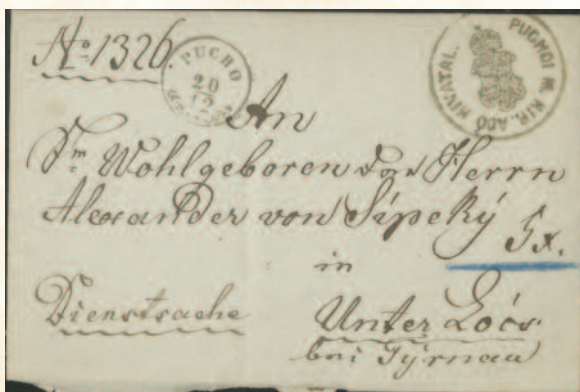 No 1326.
PUCHO
20
12
PUCHOI M. KIR. ADÓ HIVATAL.
An
Sr. Wohlgeboren den Herrn
Alexander von Sipeký
5x.
in
Dienstsache
Unter Loócs
bei Tÿrnau